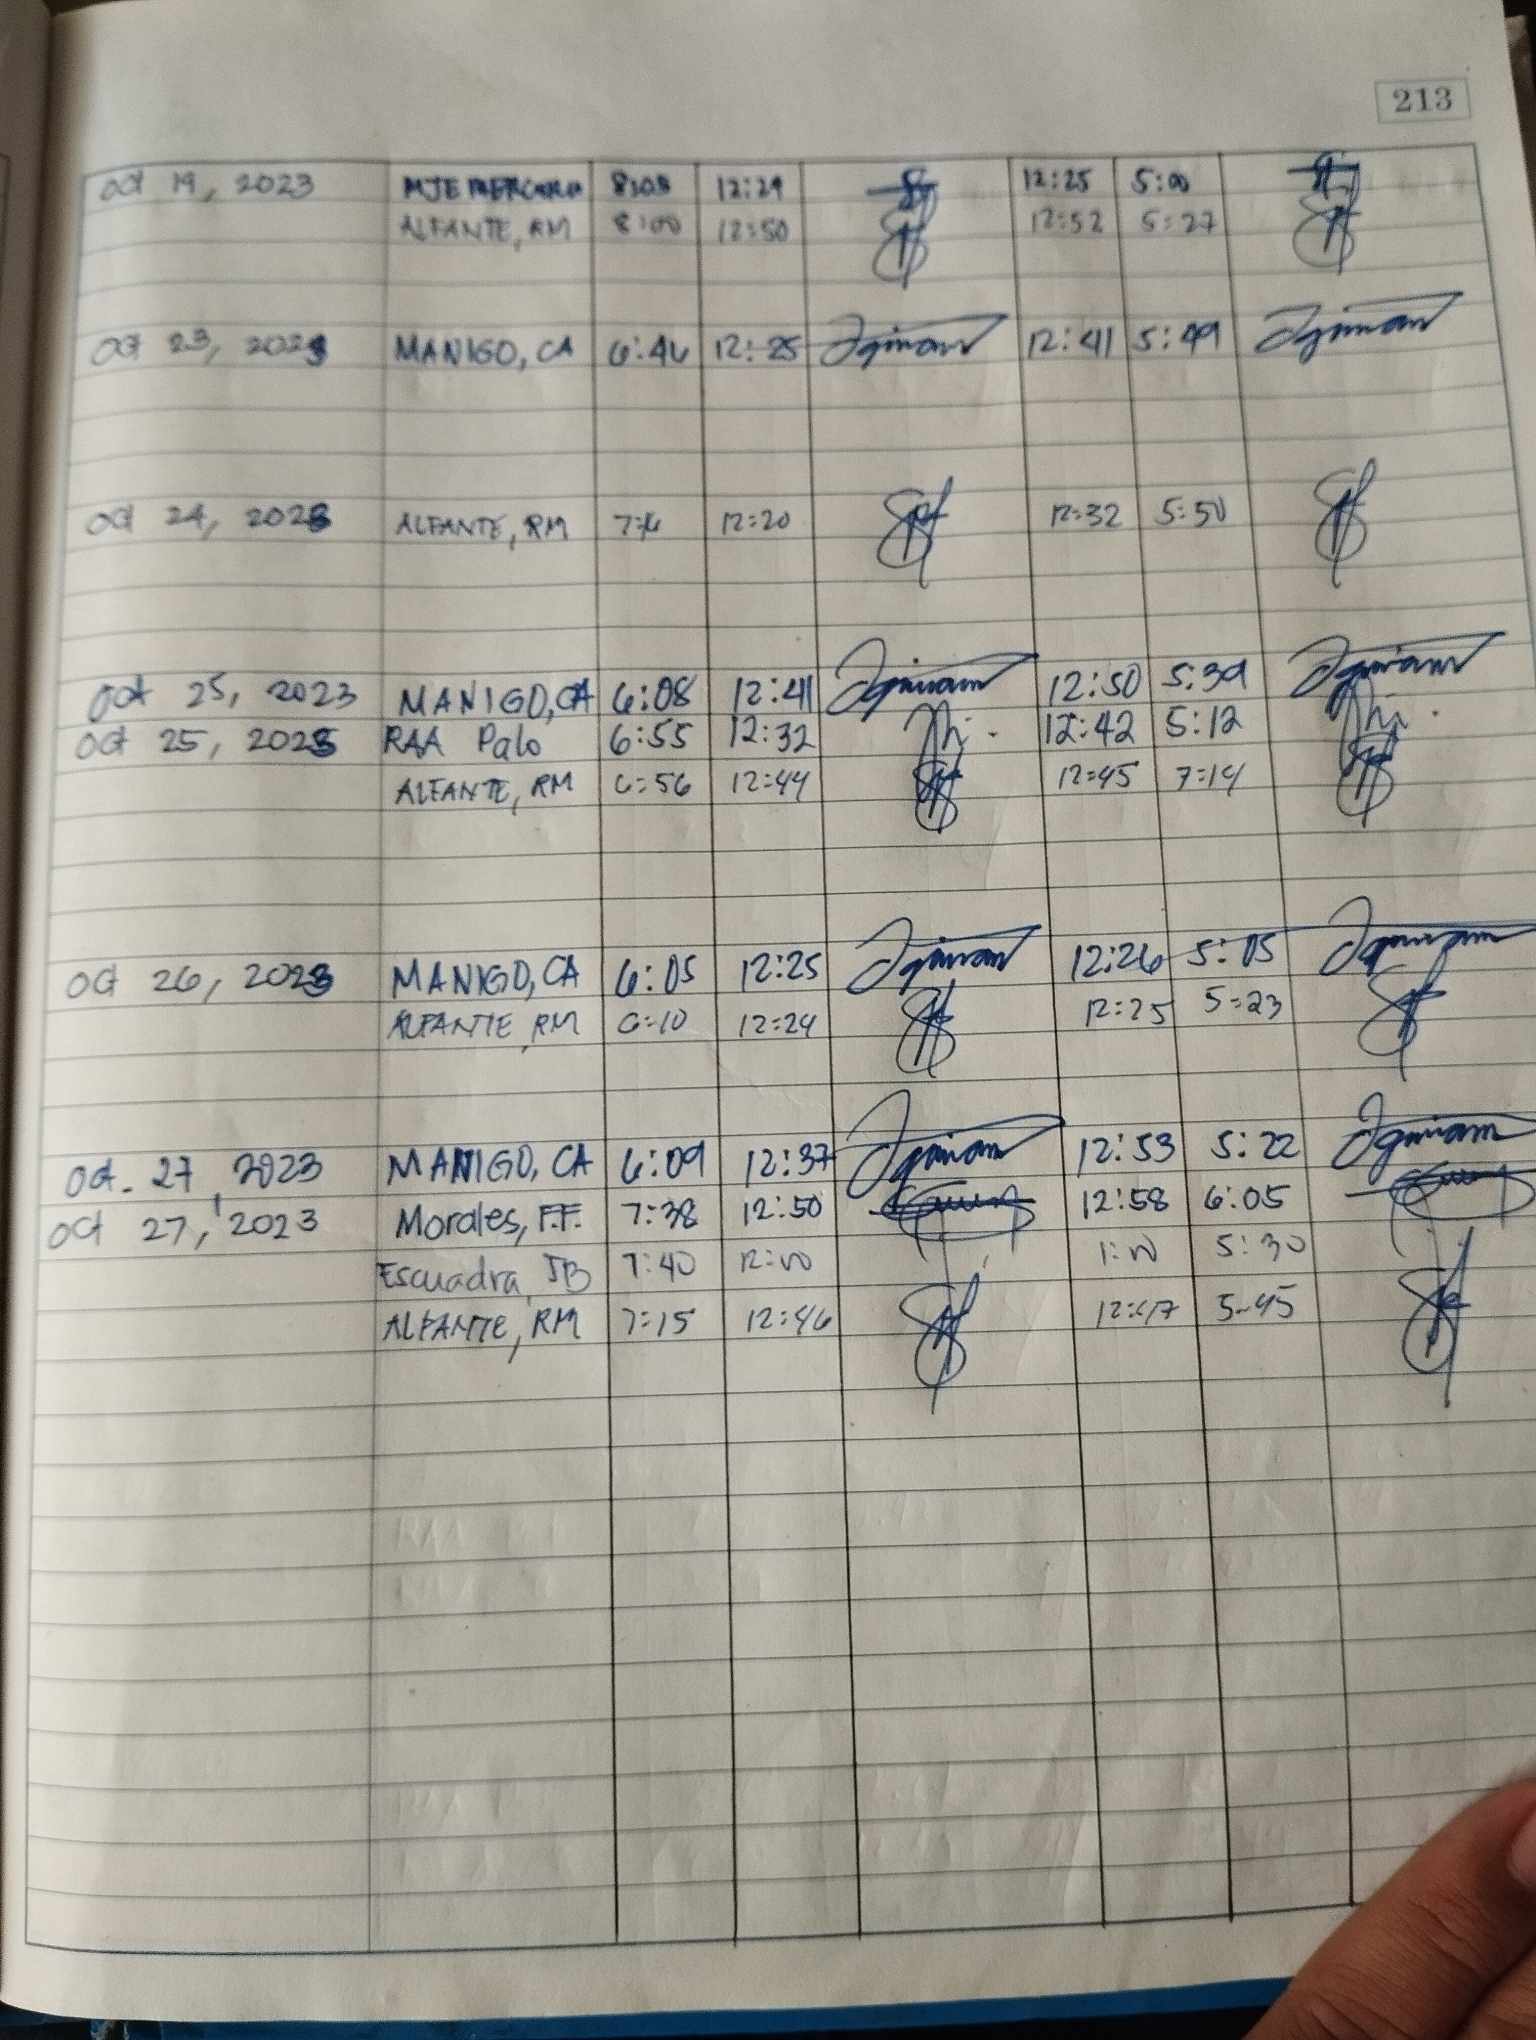 213
Oct 19, 2023 MJE 8:08 12:29 12:25 5:00
ALFANTE, RM 8:00 12:50 12:52 5:27
Oct 23, 2023 MANIGO, CA 6:46 12:25 12:41 5:49
Oct 24, 2023 ALFANTE, RM 12:20 12:32 5:50
Oct 25, 2023 MANIGO, CA 6:08 12:41 12:50 5:39
Oct 25, 2023 RAA Palo 6:55 12:32 12:42 5:12
ALFANTE, RM 6:56 12:44 12:45 7:14
Oct 26, 2023 MANIGO, CA 6:05 12:25 12:26 5:05
ALFANTE, RM 6:10 12:24 12:25 5:23
Oct. 27, 2023 MANIGO, CA 6:09 12:37 12:53 5:22
Oct 27, 2023 Morales, F.F. 7:38 12:50 12:58 6:05
Escuadra, JB 7:40 12:00 1:00 5:30
ALFANTE, RM 7:15 12:46 12:47 5-45